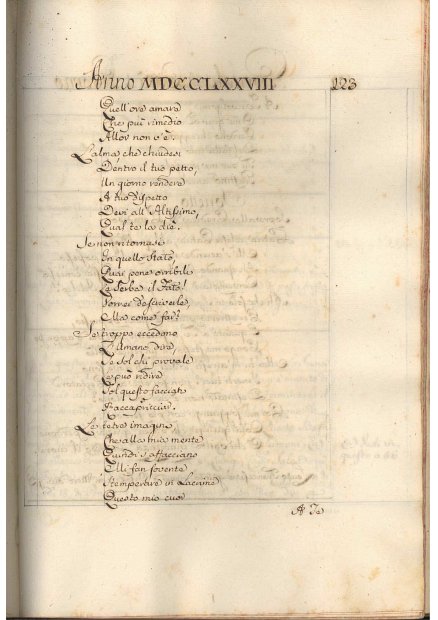 Anno MDCCLXXVIII 123
Quell'ore amare
Che più rimedio
Allor non v'è.
L'alma, che chiudesi
Dentro il tuo petto,
Un giorno rendere
A tuo dispetto
Devi all'Altissimo,
Qual te la diè.
Se non ritornase
In quello stato,
Quai pene orribili
Le serba il Fato!
Vorrei descriverle,
Ma come far?
Se troppo eccedono
L'Umano dire,
Se sol chi provale
Le può ridire
Sol questo facciati
Raccapricciar.
Le tetre imagini
Che alla mia mente
Quindi s'affacciano
Mi fan sovente
Stemperare in Lacrime
Questo mio cuor
A Te